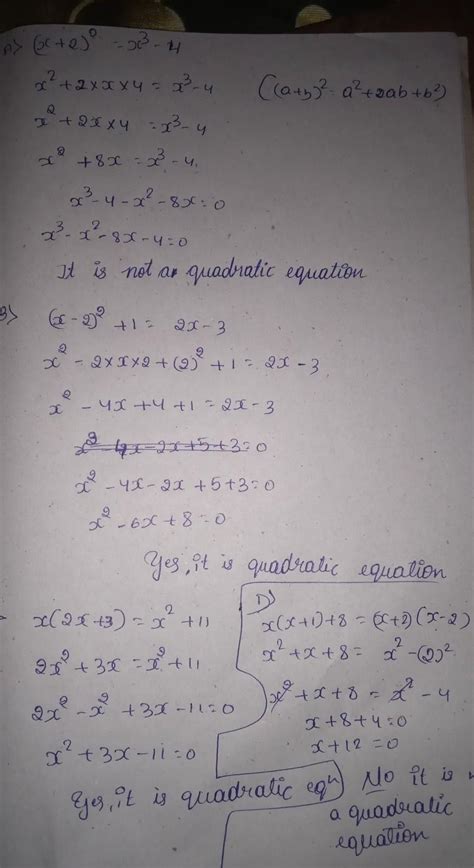 A> (x+2)² = x³ - 4
x² + 2 × x × 4 = x³ - 4 ((a+b)² = a² + 2ab + b²)
x² + 2x × 4 = x³ - 4
x² + 8x = x³ - 4
x³ - 4 - x² - 8x = 0
x³ - x² - 8x - 4 = 0
It is not a quadratic equation
B> (x-2)² + 1 = 2x - 3
x² - 2 × x × 2 + (2)² + 1 = 2x - 3
x² - 4x + 4 + 1 = 2x - 3
x² - 4x - 2x + 5 + 3 = 0
x² - 4x - 2x + 5 + 3 = 0
x² - 6x + 8 = 0
Yes, it is quadratic equation
x(2x+3) = x² + 11
2x² + 3x = x² + 11
2x² - x² + 3x - 11 = 0
x² + 3x - 11 = 0
Yes, it is quadratic eqⁿ
D)
x(x+1) + 8 = (x+2)(x-2)
x² + x + 8 = x² - (2)²
x² + x + 8 = x² - 4
x + 8 + 4 = 0
x + 12 = 0
No it is
a quadratic
equation